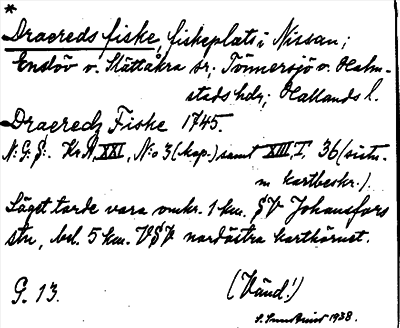 *
Dracreds fiske, fiskeplats i Nissan;
Enslöv o. Slättåkra sr. Tönnersjö o. Halm-
stads hdr, Hallands l.
Dracredz Fiske 1745.
N:G:S:. Kr.A. XXI, N:o 3 (kap.) samt XIII,I, 36 (
m kartbeskr.).
Läget torde vara omkr. 1 km. SV Johansfors
stn, bel. 5 km. VSV nordöstra karthörnet.
G. 13. (Vänd!)
1938.